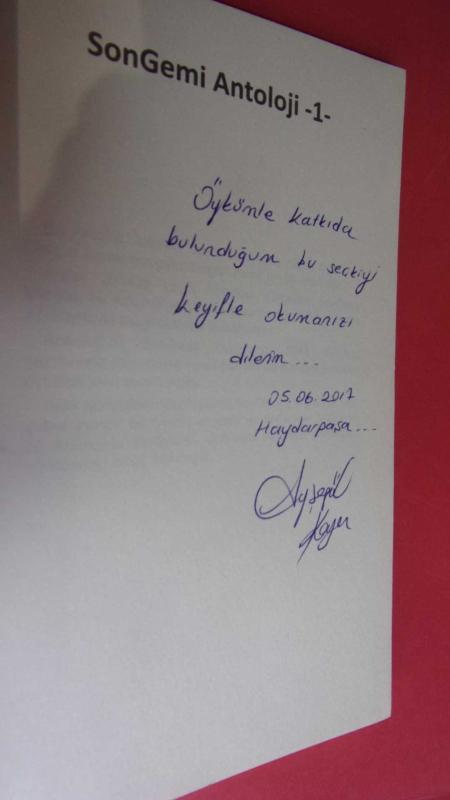 SonGemi Antoloji -1-
Öykümle katkıda
bulunduğum bu seçkiyi
keyifle okumanızı
dilerim...
05.06.2017
Haydarpaşa...
Ayşegül